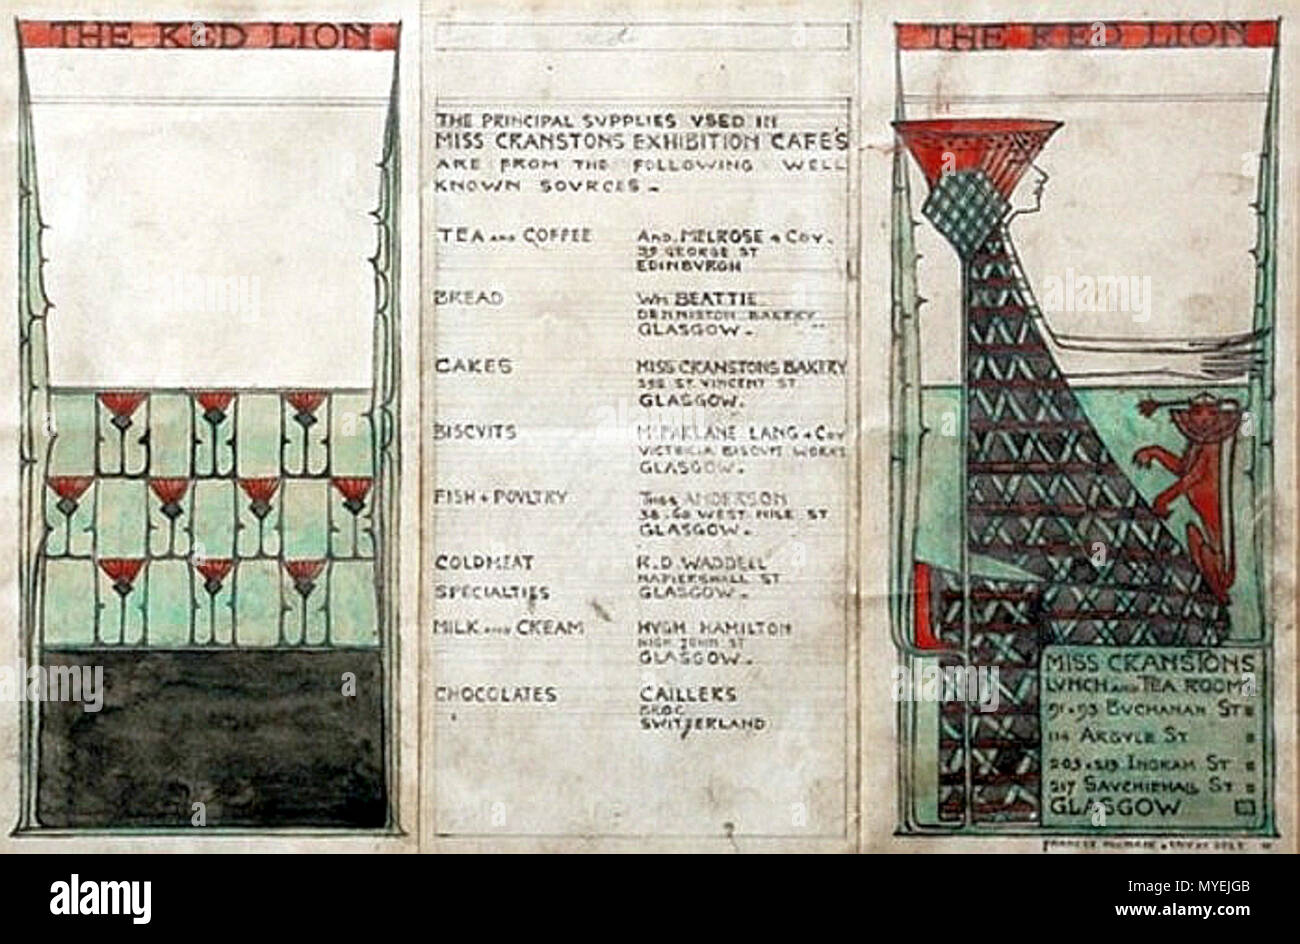 THE RED LION
THE PRINCIPAL SUPPLIES VSED IN
MISS CRANSTONS EXHIBITION CAFE'S
ARE FROM THE FOLLOWING WELL
KNOWN SOVRCES -
TEA AND COFFEE
AND. MELROSE & COY.
39 GEORGE ST
EDINBVRGH
BREAD
WM BEATTIE
DENNISTON BAKERY
GLASGOW -
CAKES
MISS CRANSTONS BAKERY
292 ST VINCENT ST
GLASGOW.
BISCVITS
MCFARLANE LANG & COY
VICTORIA BISCVIT WORKS
GLASGOW -
FISH & POVLTRY
THOS ANDERSON
WEST NILE ST
GLASGOW -
COLDMEAT
SPECIALTIES
R.D. WADDELL
NAPIERSHALL ST
GLASGOW -
MILK AND CREAM
HVGH HAMILTON
HIGH JOHN ST
GLASGOW -
CHOCOLATES
CAILLERS
BROC
SWITZERLAND
THE RED LION
MISS CRANSTONS
LVNCH AND TEA ROOMS
91 & 93 BUCHANAN ST
114 ARGYLE ST
205 & 213 INGRAM ST
217 SAVCHIEHALL ST
GLASGOW
alamy
Image ID: MYEJGB
www.alamy.com